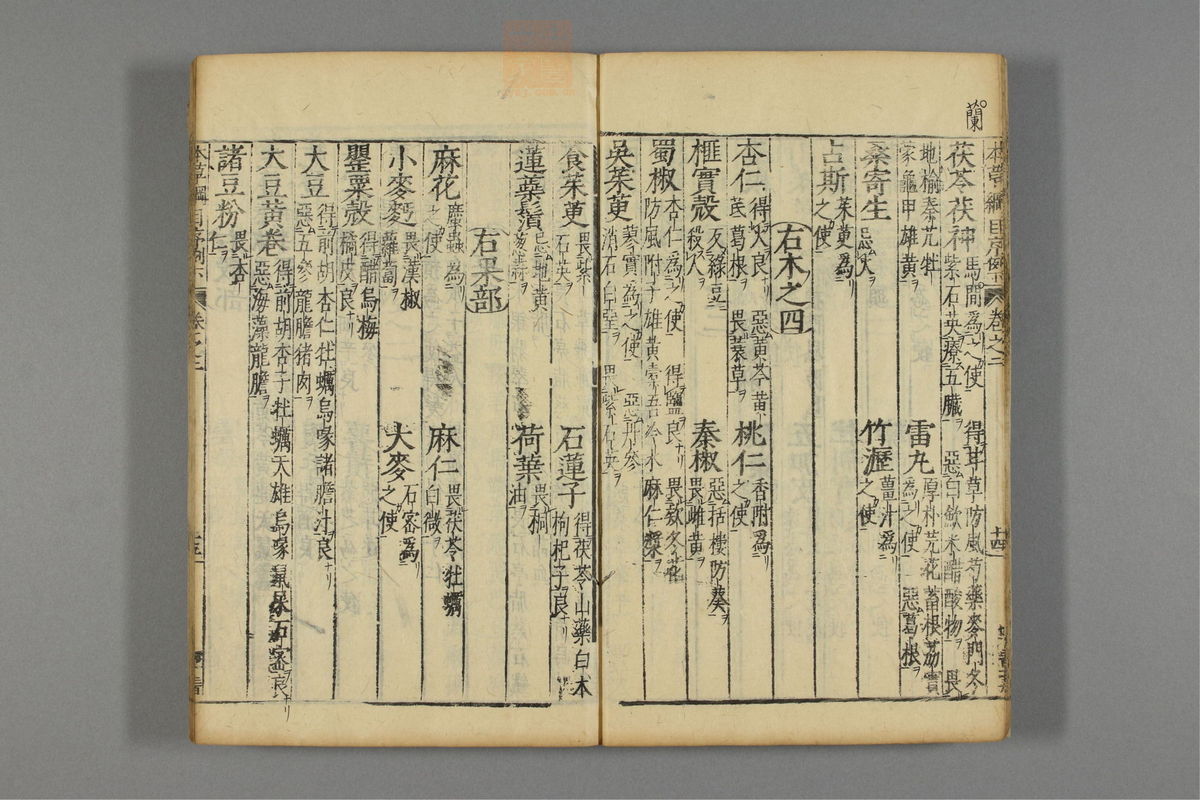 蘭
茯苓茯神 馬間為之使 得甘草防風芍藥麥門冬
紫石英療五臟 惡白斂米醋酸物 畏
地榆秦艽牡
蒙龜甲雄黃 雷丸 厚朴芫花蓄根荔實
為之使 惡葛根
桑寄生 忌火 竹瀝 薑汁為
之使
占斯 茱萸為
之使
右木之四
杏仁 得火良 惡黃芩黃
芪葛根 畏蓑草 桃仁 香附為
之使
榧實殼 反綠豆
殺人 秦椒 惡括樓防葵
畏雌黃
蜀椒 杏仁為之使 得鹽良 畏款冬花
防風附子雄黃槖吾冷水麻仁漿
吳茱萸 蓼實為之使 惡丹參
消石白堊 畏紫石英
食茱萸 畏紫
石英 石蓮子 得茯苓山藥白朮
枸杞子良
蓮蘂鬚 忌地黃
葱蒜 荷葉 畏桐
油
右果部
麻花 䗪蟲為
之使 麻仁 畏茯苓牡蠣
白微
小麥麪 畏漢椒
蘿蔔 大麥 石密為
之使
罌粟殼 得醋烏梅
橘皮良
大豆 得前胡杏仁牡蠣烏喙諸膽汁良
惡五參龍膽猪肉
大豆黃卷 得前胡杏子牡蠣天雄烏喙鼠屎石密良
惡海藻龍膽
諸豆粉 畏杏
仁